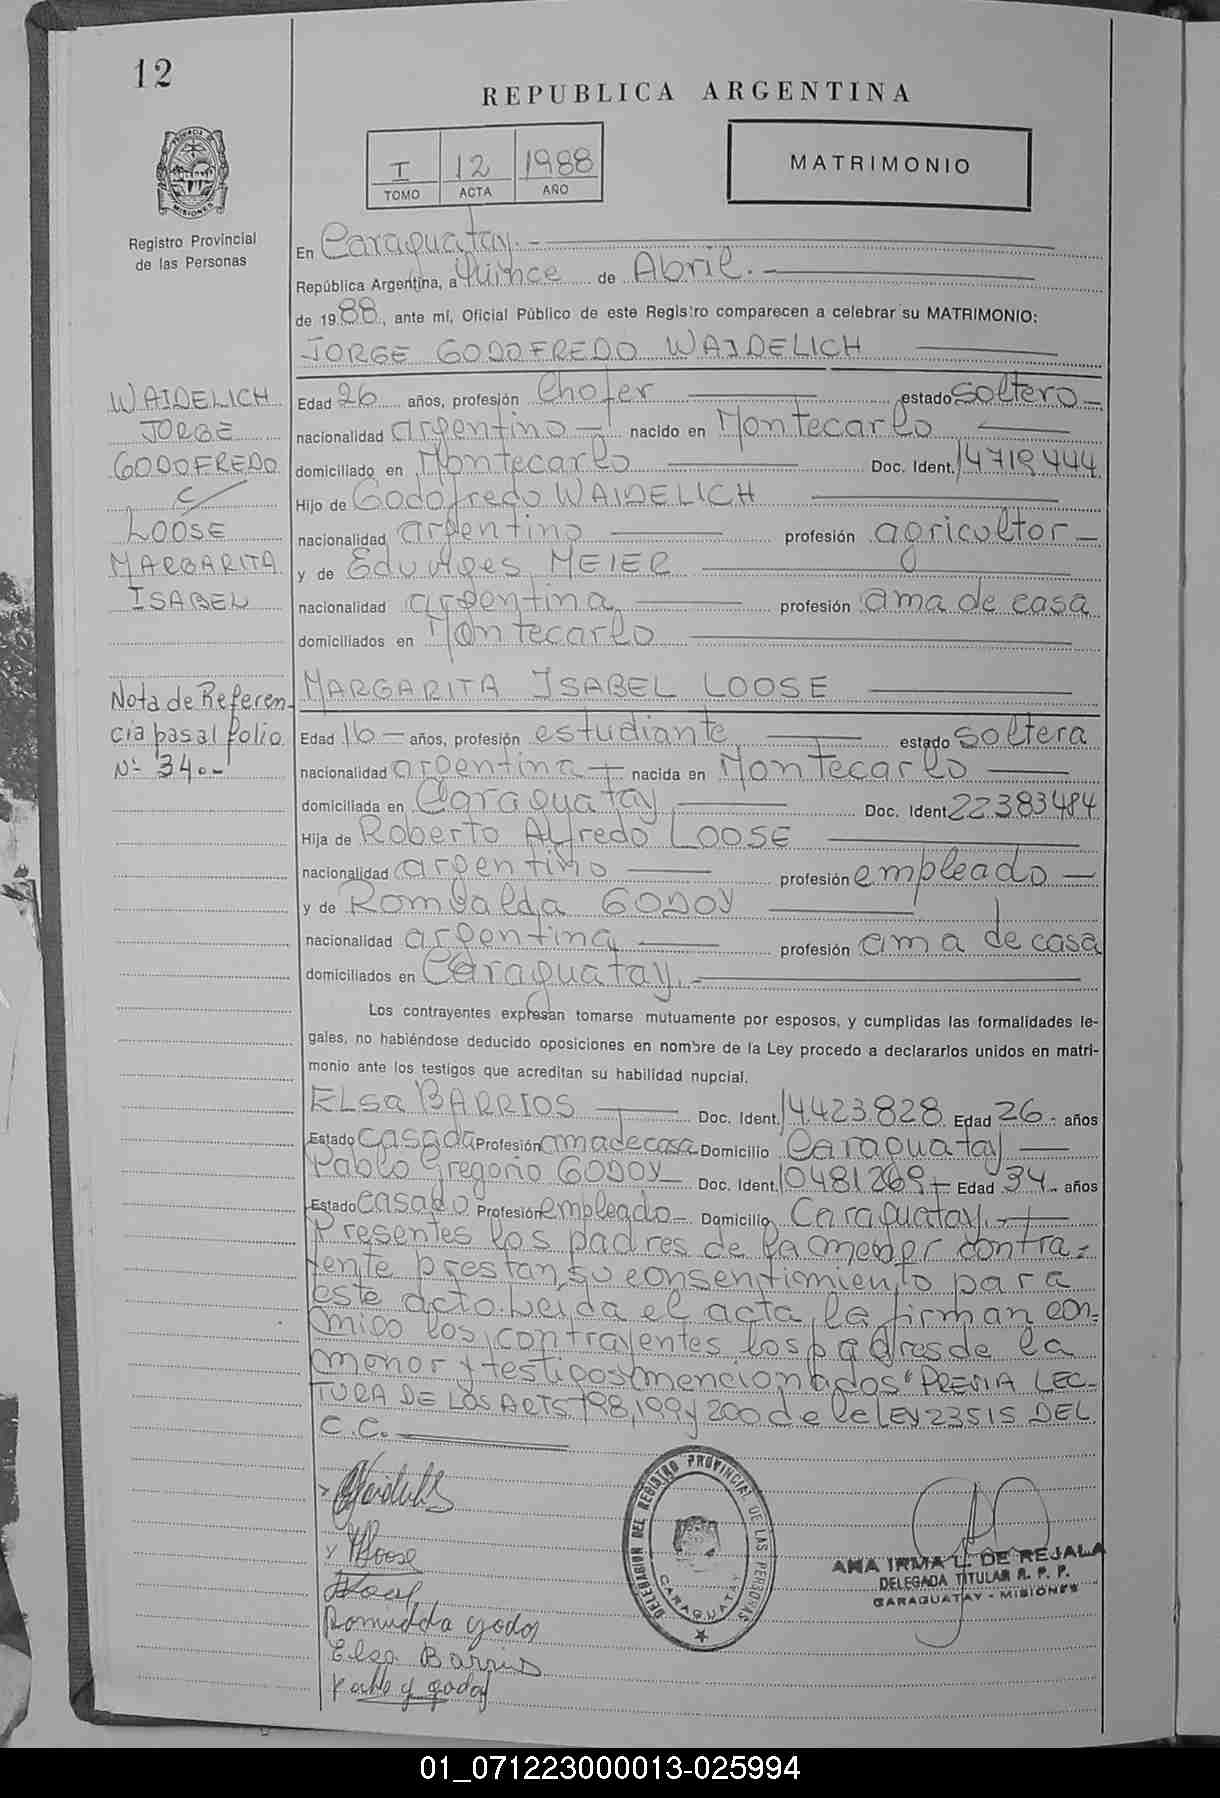 12
REPUBLICA ARGENTINA
I 12 1988
TOMO ACTA AÑO
MATRIMONIO
PROVINCIA DE MISIONES
Registro Provincial
de las Personas
En Caraguatay.-
República Argentina, a Quince de Abril.-
de 1988, ante mí, Oficial Público de este Registro comparecen a celebrar su MATRIMONIO:
JORGE GODOFREDO WAIDELICH
WAIDELICH
JORGE
GODOFREDO
C/
LOOSE
MARGARITA
ISABEL
Edad 26 años, profesión Chofer estado soltero-
nacionalidad argentino- nacido en Montecarlo
domiciliado en Montecarlo Doc. Ident. 14719444
Hijo de Godofredo WAIDELICH
nacionalidad argentino profesión agricultor-
y de Eduviges MEIER
nacionalidad argentina profesión ama de casa
domiciliados en Montecarlo
MARGARITA ISABEL LOOSE
Nota de Referen-
cia pasa al folio
Nº 340.-
Edad 16- años, profesión estudiante estado soltera
nacionalidad argentina- nacida en Montecarlo
domiciliada en Caraguatay Doc. Ident. 22383484
Hija de Roberto Alfredo LOOSE
nacionalidad argentino profesión empleado-
y de Romualda GODOY
nacionalidad argentina profesión ama de casa
domiciliados en Caraguatay.-
Los contrayentes expresan tomarse mutuamente por esposos, y cumplidas las formalidades le-
gales, no habiéndose deducido oposiciones en nombre de la Ley procedo a declararlos unidos en matri-
monio ante los testigos que acreditan su habilidad nupcial.
ELSA BARRIOS Doc. Ident. 14423828 Edad 26- años
Estado casada Profesión ama de casa Domicilio Caraguatay
Pablo Gregorio GODOY- Doc. Ident. 10481269- Edad 34- años
Estado casado Profesión empleado- Domicilio Caraguatay.-
Presentes los padres de la menor contra-
yente prestan su consentimiento para
este acto. Leida el acta, la firman con-
migo los contrayentes, los padres de la
menor y testigos mencionados "PREVIA LEC-
TURA DE LOS ARTS. 198, 199 y 200 de la LEY 23515 DEL
C.C.
DELEGACION DEL REGISTRO PROVINCIAL DE LAS PERSONAS
CARAGUATAY
ANA IRMA L. DE REJALA
DELEGADA TITULAR R. P. P.
CARAGUATAY - MISIONES
Loose
Romualda godoy
Elsa Barrios
Pablo g godoy
01_071223000013-025994